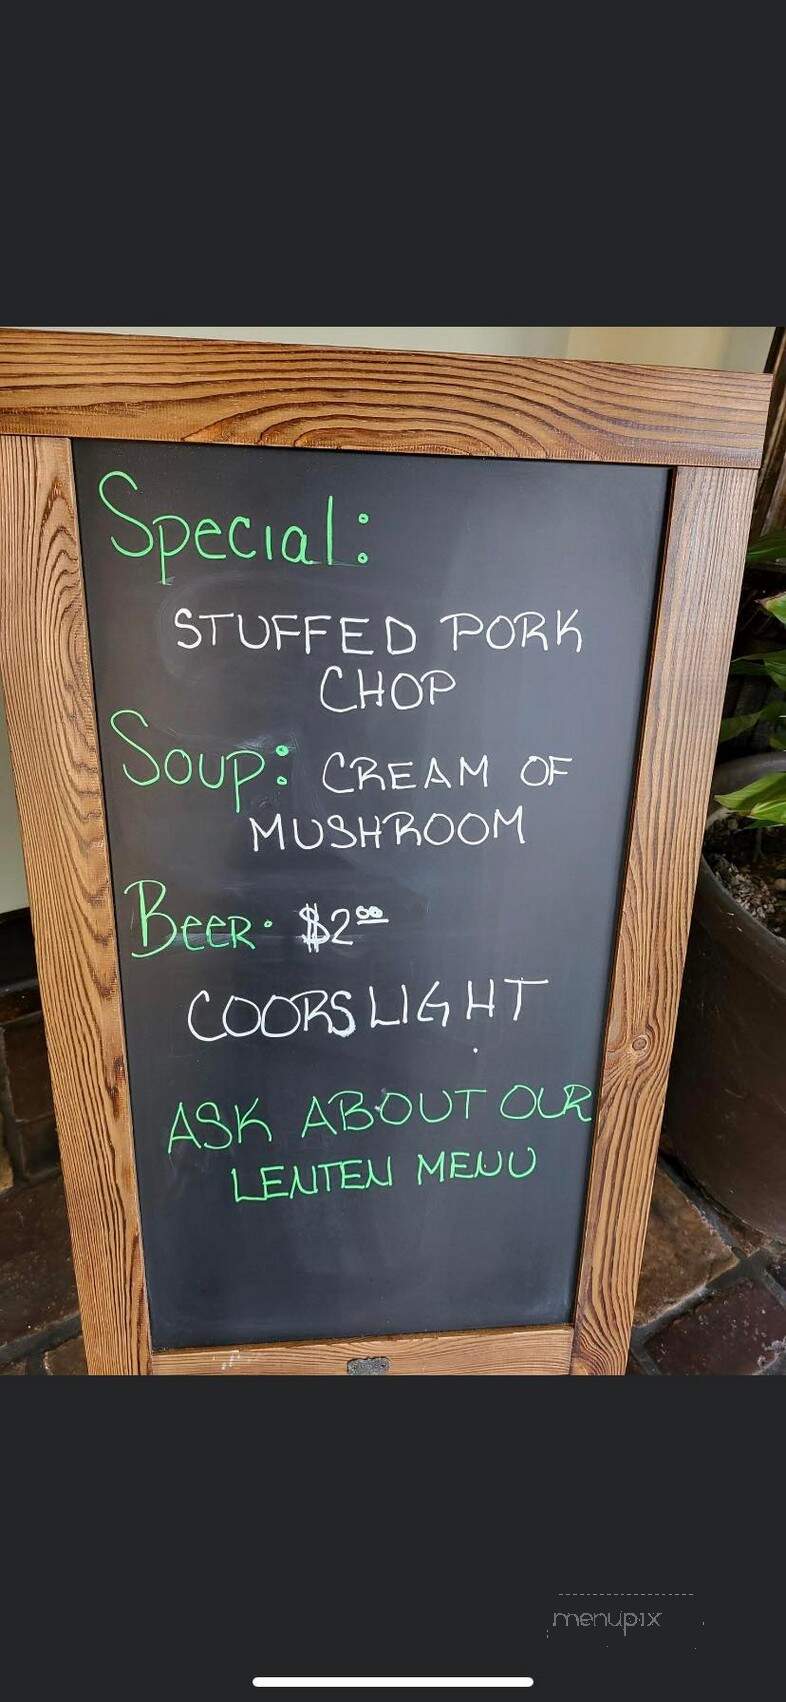 Special:
STUFFED PORK
CHOP
Soup: CREAM OF
MUSHROOM
BEER· $2.00
COORS LIGHT
ASK ABOUT OUR
LENTEN MENU
menupix